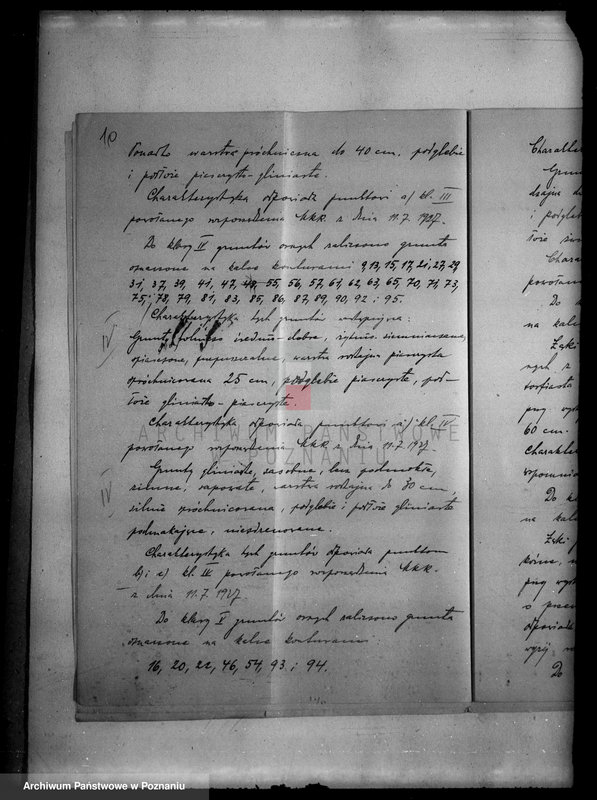 10
Ponadto warstwa próchniczna do 40 cm, podglebie
i podłoże piaszczysto-gliniaste.
Charakterystyka odpowiada punktowi a) kl. III
powołanego rozporządzenia KKR z dnia 11.7.1927.
Do klasy IV gruntów ornych zaliczono grunta
oznaczone na kalce konturami 9, 13, 15, 17, 21, 27, 29,
31, 37, 39, 41, 47, 48, 55, 56, 57, 61, 62, 63, 65, 70, 71, 73,
75, 78, 79, 81, 83, 85, 86, 87, 89, 90, 92 i 95.
Charakterystyka tych gruntów następująca:
IV
Grunty średnio-dobre, żytnio-ziemniaczane,
spiaszczone, przepuszczalne, warstwa rodzajna piaszczysta
spróchnicowana 25 cm, podglebie piaszczyste, pod-
łoże gliniasto-piaszczyste.
Charakterystyka odpowiada punktowi a) kl. IV
powołanego rozporządzenia KKR z dnia 11.7.1927.
IV
Grunty gliniaste, zasobne, lecz podmokłe,
zimne, warstwa rodzajna do 30 cm,
silnie spróchnicowana, podglebie i podłoże gliniaste
podmakające, niezdrenowane.
Charakterystyka tych gruntów odpowiada punktom
b) i c) kl. IV powołanego rozporządzenia KKR.
z dnia 11.7.1927.
Do klasy V gruntów ornych zaliczono grunta
oznaczone na kalce konturami
16, 20, 22, 46, 54, 93 i 94.
Charakte
i podgleb
Chara
powołan
Do
na kal
60 cm.
Charakter
Do kl
na kal
przy wyst
odpowiada
Do
ARCHIWUM PAŃSTWOWE
W POZNANIU
Archiwum Państwowe w Poznaniu